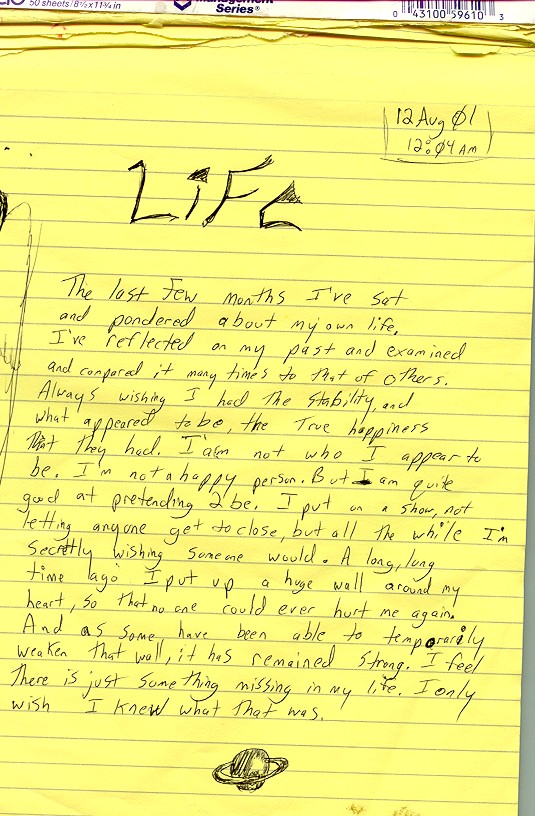 50 sheets/8½x11¾ in
Management
Series®
0 43100 59610 3
12 Aug 01
12:04 AM
LiFe
The last few months I've sat
and pondered about my own life.
I've reflected on my past and examined
and conpared it many times to that of others.
Always wishing I had the stability, and
what appeared to be, the True happiness
that they had. I am not who I appear to
be. I'm not a happy person. But I am quite
good at pretending 2 be. I put on a show, not
letting anyone get to close, but all the while I'm
secretly wishing someone would. A long, long
time ago I put up a huge wall around my
heart, so that no one could ever hurt me again.
And as some, have been able to temporarily
weaken that wall, it has remained strong. I feel
there is just something missing in my life. I only
wish I knew what that was.